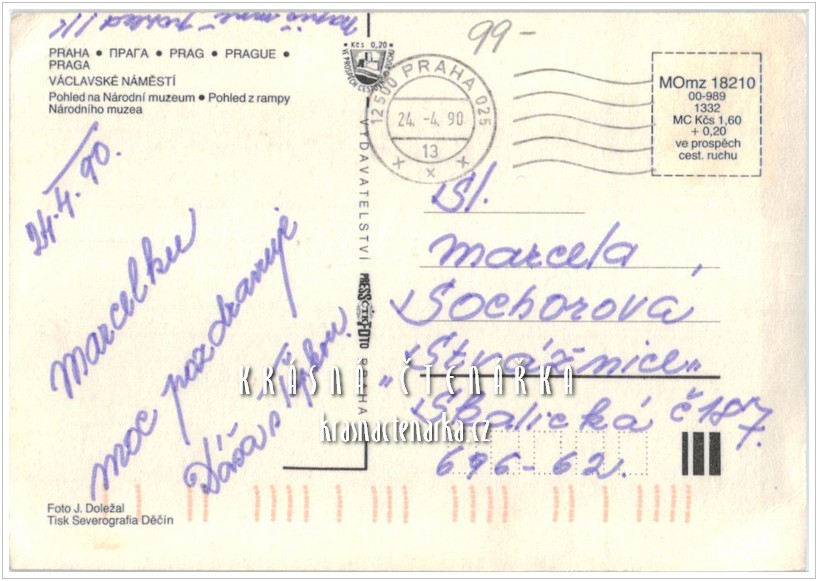 PRAHA ● ПРАГА ● PRAG ● PRAGUE ●
PRAGA
VÁCLAVSKÉ NÁMĚSTÍ
Pohled na Národní muzeum ● Pohled z rampy
Národního muzea
24.4.90.
Marcelku
moc pozdravuje
Dáša s
Foto J. Doležal
Tisk Severografia Děčín
Kčs 0,20
VE PROSPĚCH CEST. RUCHU
VYDAVATELSTVÍ PRESSFOTO PRAHA
ČTK
99-
12500 PRAHA 025
24. -4. 90
13
MOmz 18210
00-989
1332
MC Kčs 1,60
+ 0,20
ve prospěch
cest. ruchu
Sl.
Marcela
Sochorová
„Strážnice“
Skalická č 187.
696-62.
KRÁSNÁ ČTENÁŘKA
krasnactenarka.cz